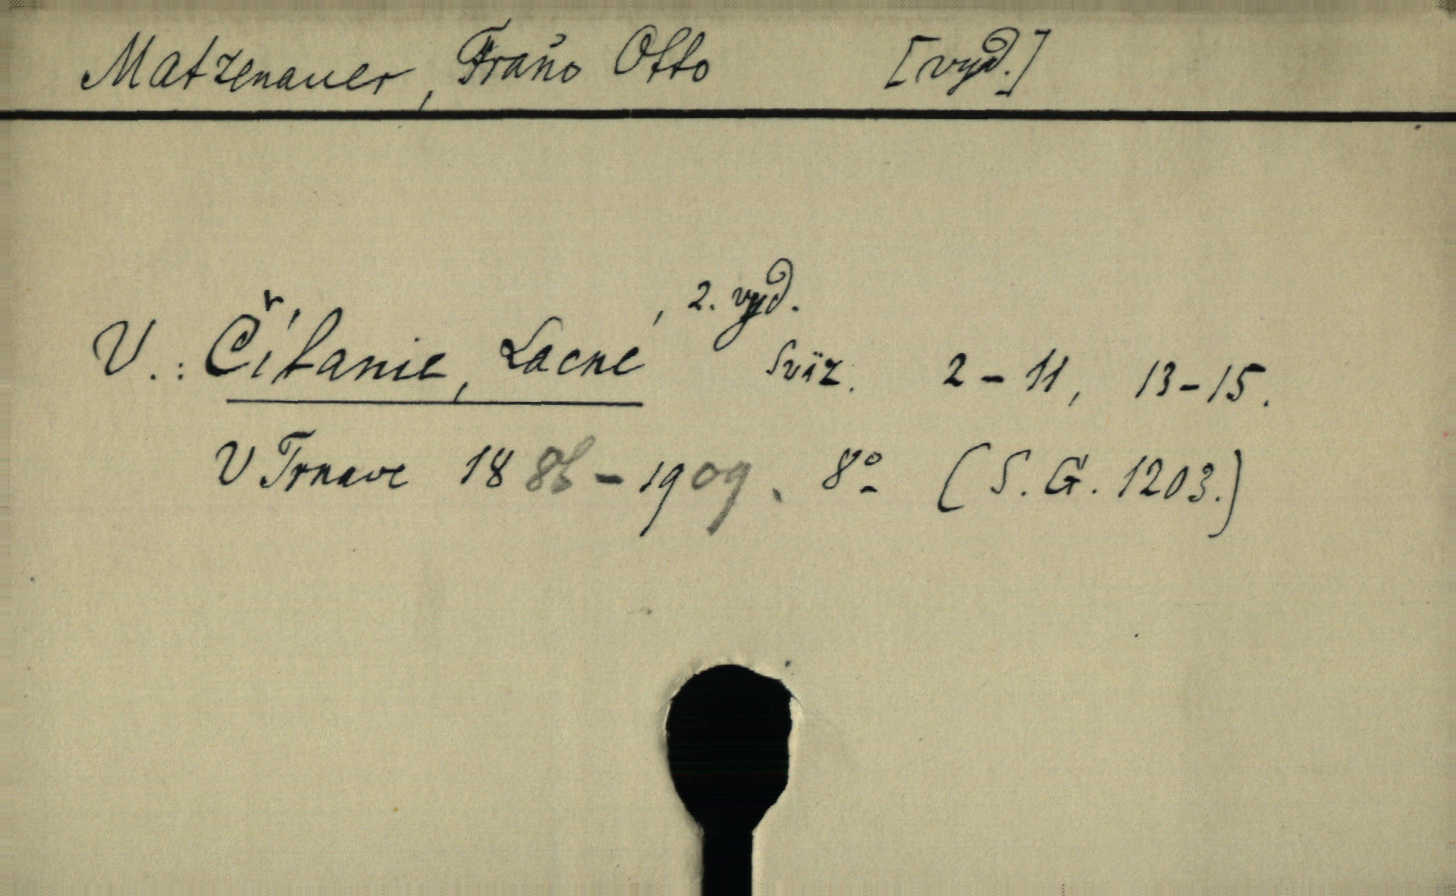 Matzenauer, Fraňo Otto [vyd.]
V.: Čítanie, Lacné, 2. vyd. Sväz. 2-11, 13-15.
V Trnave 1886-1909. 8° (S. G. 1203.)